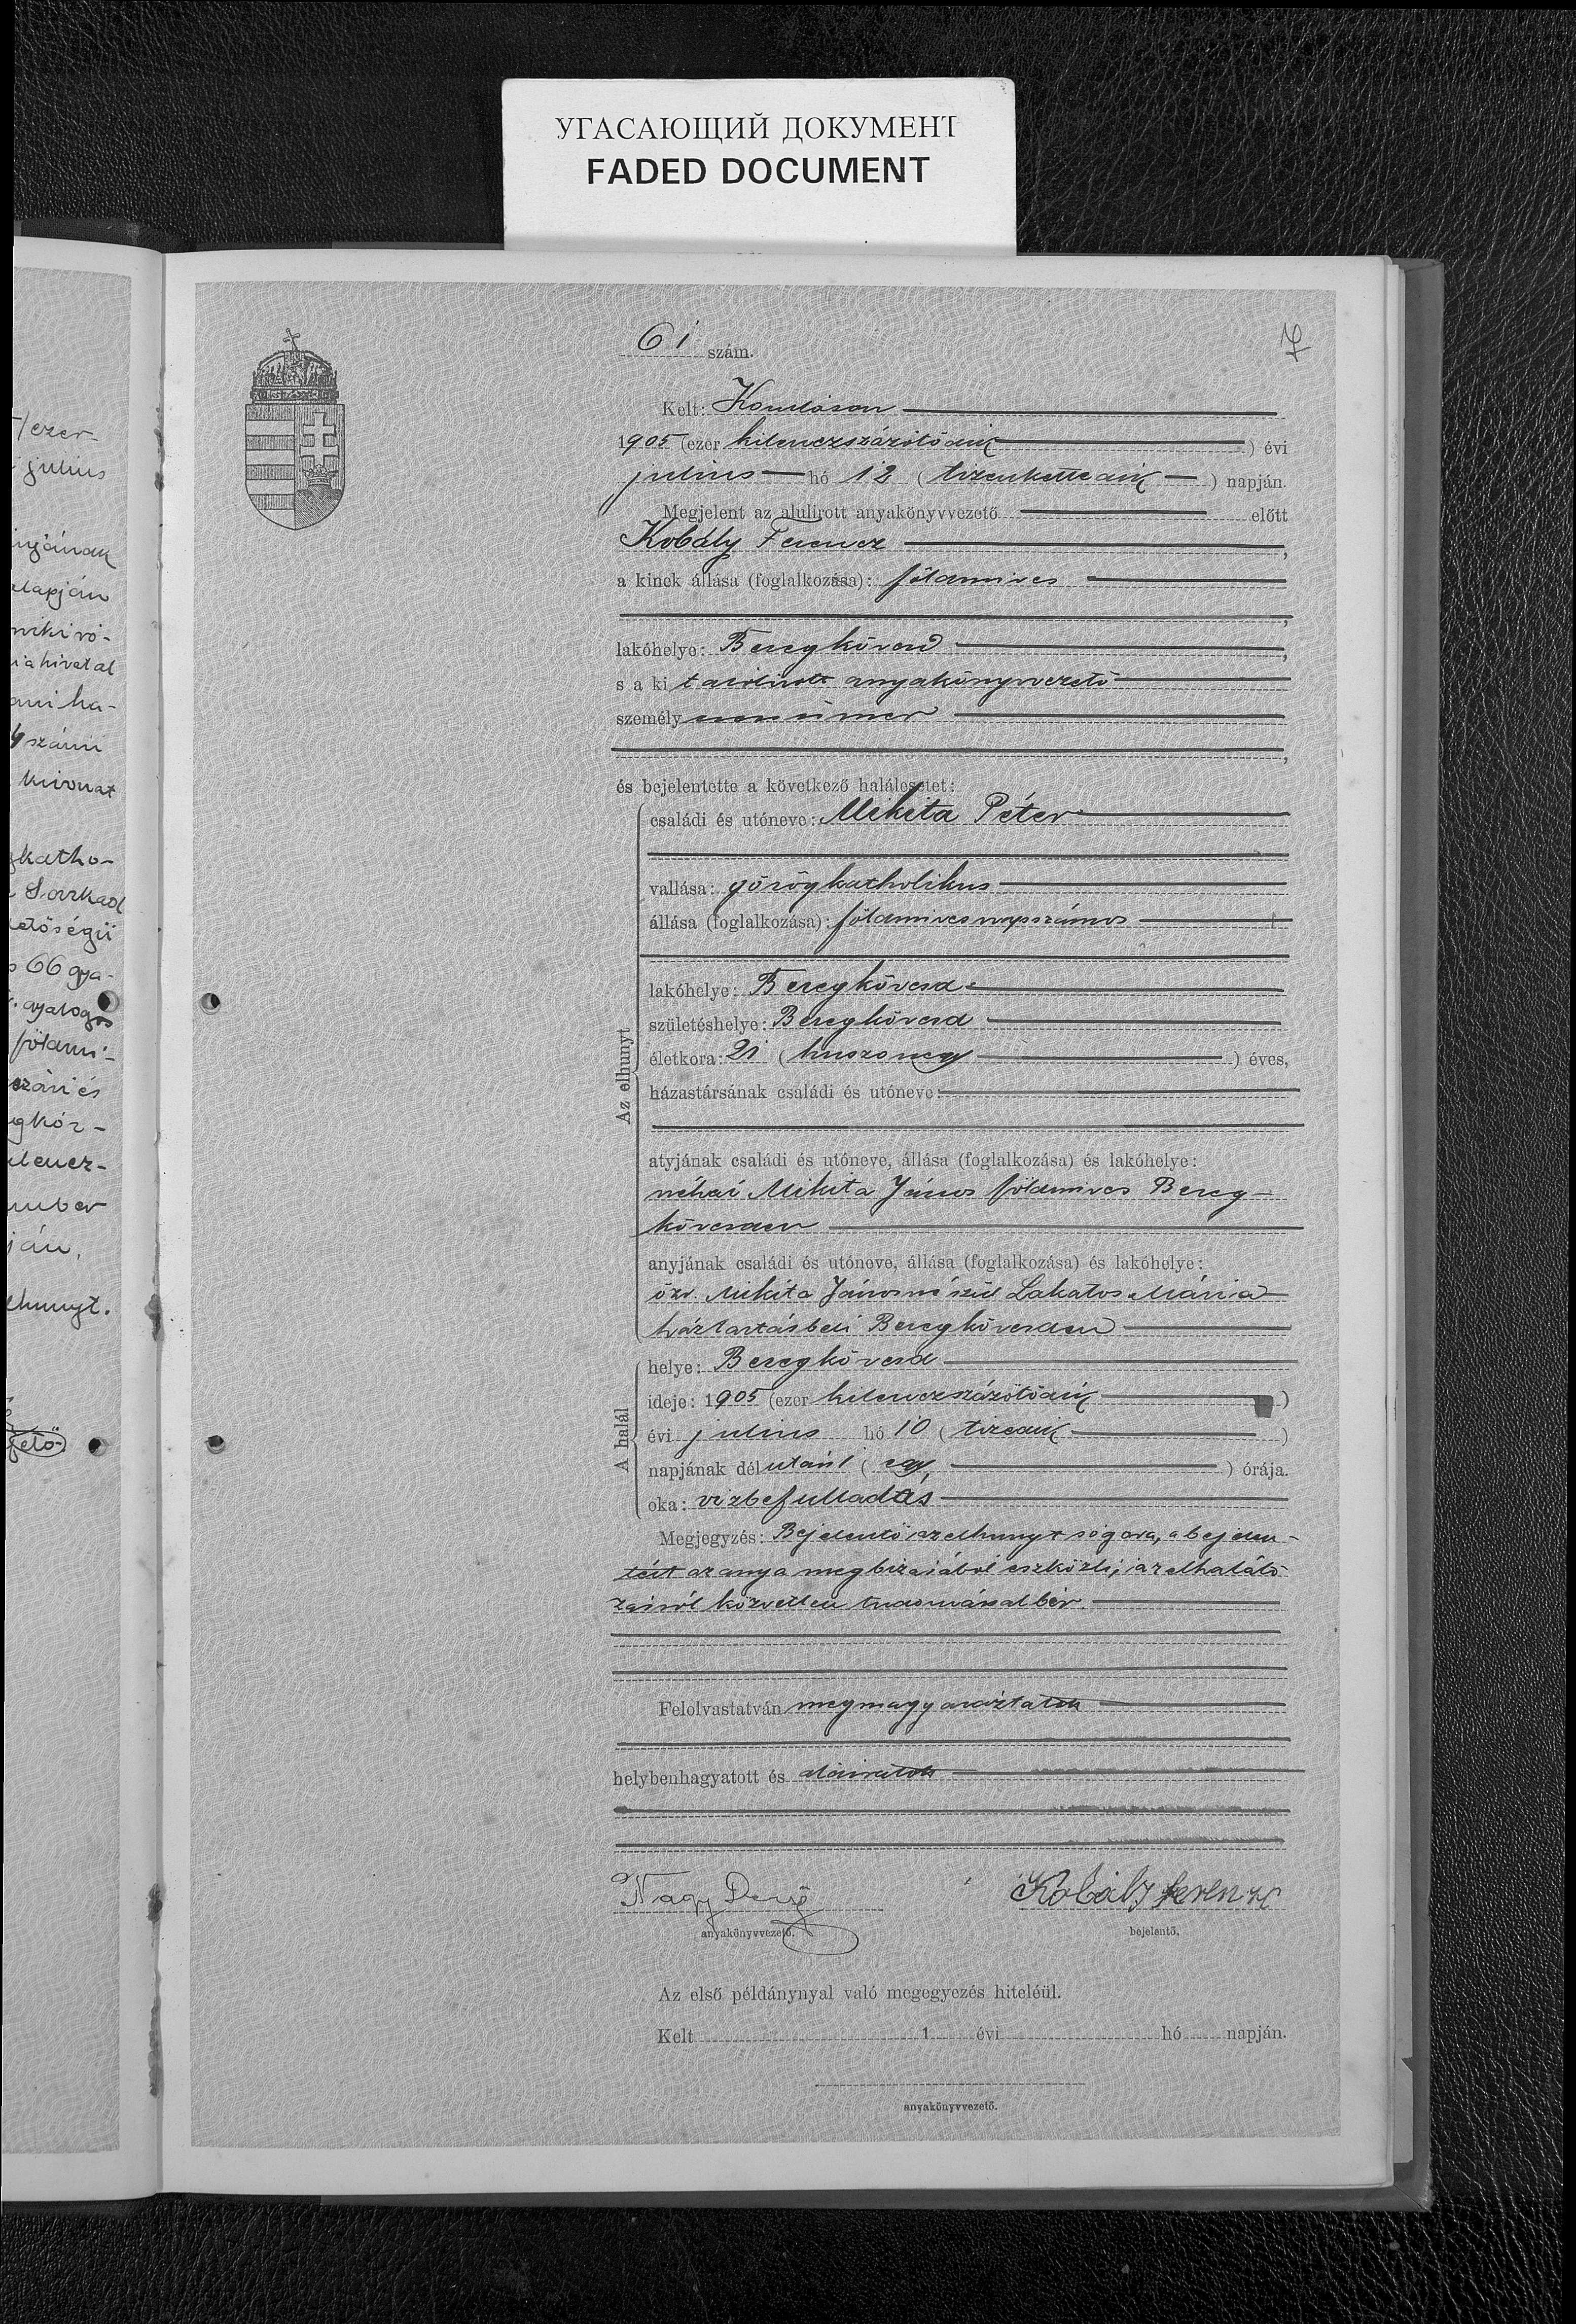 УГАСАЮЩИЙ ДОКУМЕНТ
FADED DOCUMENT
ezer-
julius
lapján
hivatal
ha-
szám
kivonat
katho-
Sarkad
tőségü
66 gya-
gyalogos
földmi-
és
ján.
elhunyt.
61 szám.
Kelt: Komlóson
1905 (ezer kilenczszázötödik) évi
julius hó 12 (tizenkettedik) napján.
Megjelent az alulirott anyakönyvvezető előtt
Kobály Ferencz,
a kinek állása (foglalkozása): földmives
,
lakóhelye: Beregkövesd,
s a ki t alólirott anyakönyvvezető
személyesen ismer
,
és bejelentette a következő halálesetet:
Az elhunyt
családi és utóneve: Mikita Péter
vallása: görögkatholikus
állása (foglalkozása): földmives napszámos
lakóhelye: Beregkövesd
születéshelye: Beregkövesd
életkora: 21 (huszonegy) éves,
házastársának családi és utóneve:
atyjának családi és utóneve, állása (foglalkozása) és lakóhelye:
néhai Mikita János földmives Bereg-
kövesden
anyjának családi és utóneve, állása (foglalkozása) és lakóhelye:
özv. Mikita Jánosné szül Lakatos Mária
háztartásbeli Beregkövesden
A halál
helye: Beregkövesd
ideje: 1905 (ezer kilenczszázötödik)
évi julius hó 10 (tizedik)
napjának délután 1 (egy) órája.
oka: vizbefulladás
Megjegyzés: Bejelentő az elhunyt sógora, a bejelen-
tést az anya megbizásából eszközli, az elhalálo-
zásról közvetlen tudomással bir.
Felolvastatván megmagyaráztatott
helybenhagyatott és aláiratott
Nagy Dezső
anyakönyvvezető.
Kobály ferencz
bejelentő.
Az első példánynyal való megegyezés hiteléül.
Kelt 1 évi hó napján.
anyakönyvvezető.